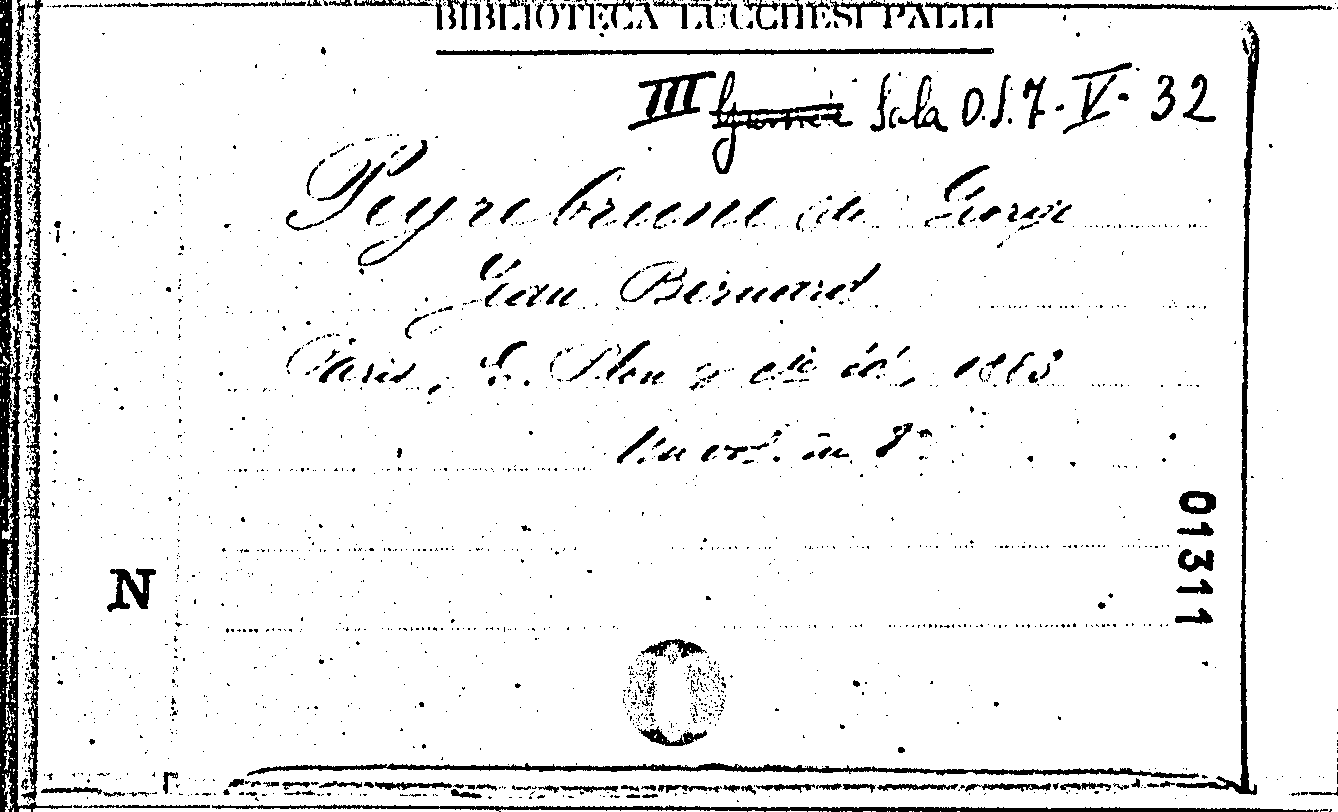 BIBLIOTECA LUCCHESI PALLI
III Sala O.S. 7. V. 32
Peyrebrune de George
Jean Bernard
Paris, E. Plon & Cie éd., 1883
Un vol. in 8°
01311
N